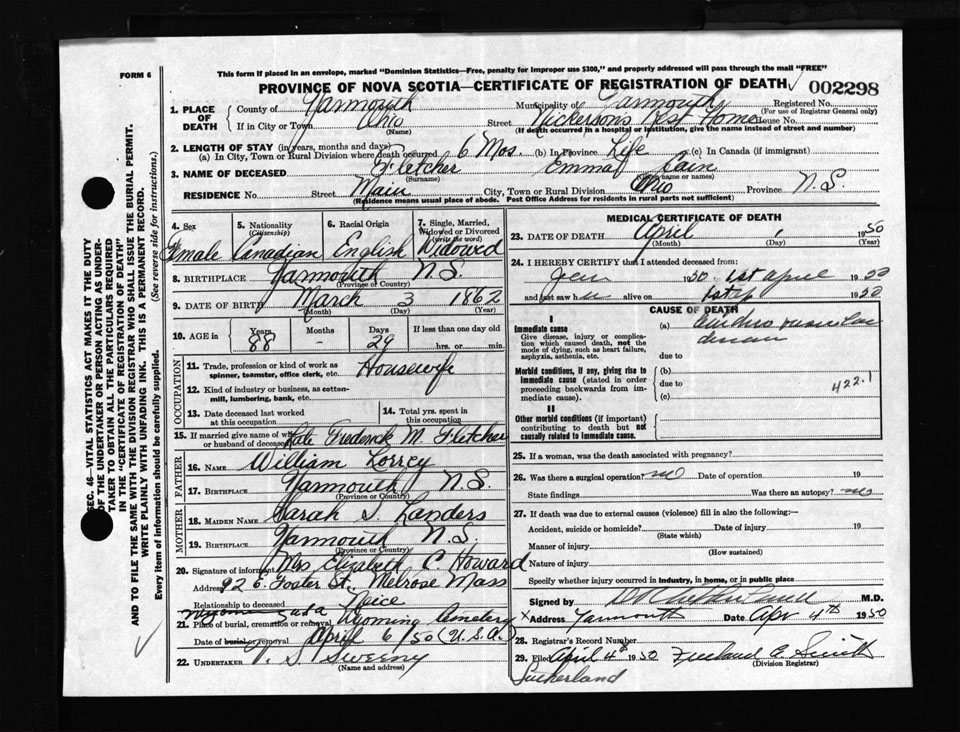 FORM 6
This form if placed in an envelope, marked "Dominion Statistics—Free, penalty for improper use $300," and properly addressed will pass through the mail "FREE"
PROVINCE OF NOVA SCOTIA—CERTIFICATE OF REGISTRATION OF DEATH
002298
1. PLACE OF DEATH
County of Yarmouth
Municipality of Yarmouth
Registered No.
(For use of Registrar General only)
If in City or Town Ohio
(Name)
Street Nickersons Rest Home House No.
(If death occurred in a hospital or institution, give the name instead of street and number)
2. LENGTH OF STAY (in years, months and days)
(a) In City, Town or Rural Division where death occurred 6 Mos. (b) In Province Life (c) In Canada (if immigrant)
3. NAME OF DECEASED Fletcher Emma Cain
(Surname) (Given name or names)
RESIDENCE No. Street Main City, Town or Rural Division Ohio Province N.S.
(Residence means usual place of abode. Post Office Address for residents in rural parts not sufficient)
4. Sex
Female
5. Nationality (Citizenship)
Canadian
6. Racial Origin
English
7. Single, Married, Widowed or Divorced (write the word)
Widowed
8. BIRTHPLACE Yarmouth N.S.
(Province or Country)
9. DATE OF BIRTH March 3 1862
(Month) (Day) (Year)
10. AGE in Years Months Days If less than one day old
88 - 29 hrs. or min.
OCCUPATION
11. Trade, profession or kind of work as spinner, teamster, office clerk, etc. Housewife
12. Kind of industry or business, as cotton-mill, lumbering, bank, etc.
13. Date deceased last worked at this occupation
14. Total yrs. spent in this occupation
15. If married give name of wife or husband of deceased Late Frederick M. Fletcher
FATHER
16. NAME William Lorrey
17. BIRTHPLACE Yarmouth N.S.
(Province or Country)
MOTHER
18. MAIDEN NAME Sarah S. Landers
19. BIRTHPLACE Yarmouth N.S.
(Province or Country)
20. Signature of informant Mrs Elizabeth C Howard
Address 92 E. Foster St. Melrose Mass
Relationship to deceased Neice
Wyoming U.S.A
21. Place of burial, cremation or removal Wyoming Cemetery
Date of burial or removal April 6/50 (U.S.A.)
22. UNDERTAKER V. S. Sweeny
(Name and address)
MEDICAL CERTIFICATE OF DEATH
23. DATE OF DEATH April 1 1950
(Month) (Day) (Year)
24. I HEREBY CERTIFY that I attended deceased from:
Jan 1950 1st april 1950
and last saw alive on 1st 1950
CAUSE OF DEATH
I
Immediate cause
Give disease, injury or complication which caused death, not the mode of dying, such as heart failure, asphyxia, asthenia, etc.
(a)
due to
Morbid conditions, if any, giving rise to immediate cause (stated in order proceeding backwards from immediate cause).
(b)
due to
(c)
422.1
II
Other morbid conditions (if important) contributing to death but not causally related to immediate cause.
25. If a woman, was the death associated with pregnancy?
26. Was there a surgical operation? no Date of operation 19
State findings Was there an autopsy? no
27. If death was due to external causes (violence) fill in also the following:—
Accident, suicide or homicide? Date of injury 19
(State which)
Manner of injury
(How sustained)
Nature of injury
Specify whether injury occurred in industry, in home, or in public place
Signed by M.D.
X Address Yarmouth Date Apr 4th 1950
28. Registrar's Record Number
29. Filed April 4th 1950 Freeland C. Smith
(Division Registrar)
Sutherland
SEC. 46—VITAL STATISTICS ACT MAKES IT THE DUTY OF THE UNDERTAKER OR PERSON ACTING AS UNDERTAKER TO OBTAIN ALL THE PARTICULARS REQUIRED IN THE "CERTIFICATE OF REGISTRATION OF DEATH"
AND TO FILE THE SAME WITH THE DIVISION REGISTRAR WHO SHALL ISSUE THE BURIAL PERMIT.
WRITE PLAINLY WITH UNFADING INK. THIS IS A PERMANENT RECORD.
Every item of information should be carefully supplied. (See reverse side for instructions.)